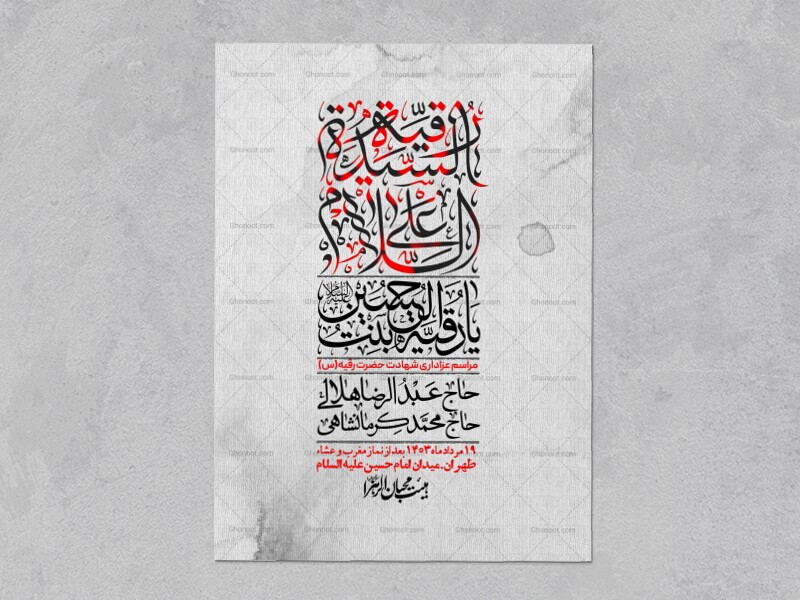 السلام علی
السیدة رقیة
یا رقیه بنت الحسین علیه السلام
مراسم عزاداری شهادت حضرت رقیه(س)
حاج عبدالرضا هلالی
حاج محمد کرمانشاهی
۱۹ مرداد ماه ۱۴۰۳ بعد از نماز مغرب و عشاء
طهران.میدان امام حسین علیه السلام
هیئت محبان الزهرا
Ghonoot.com